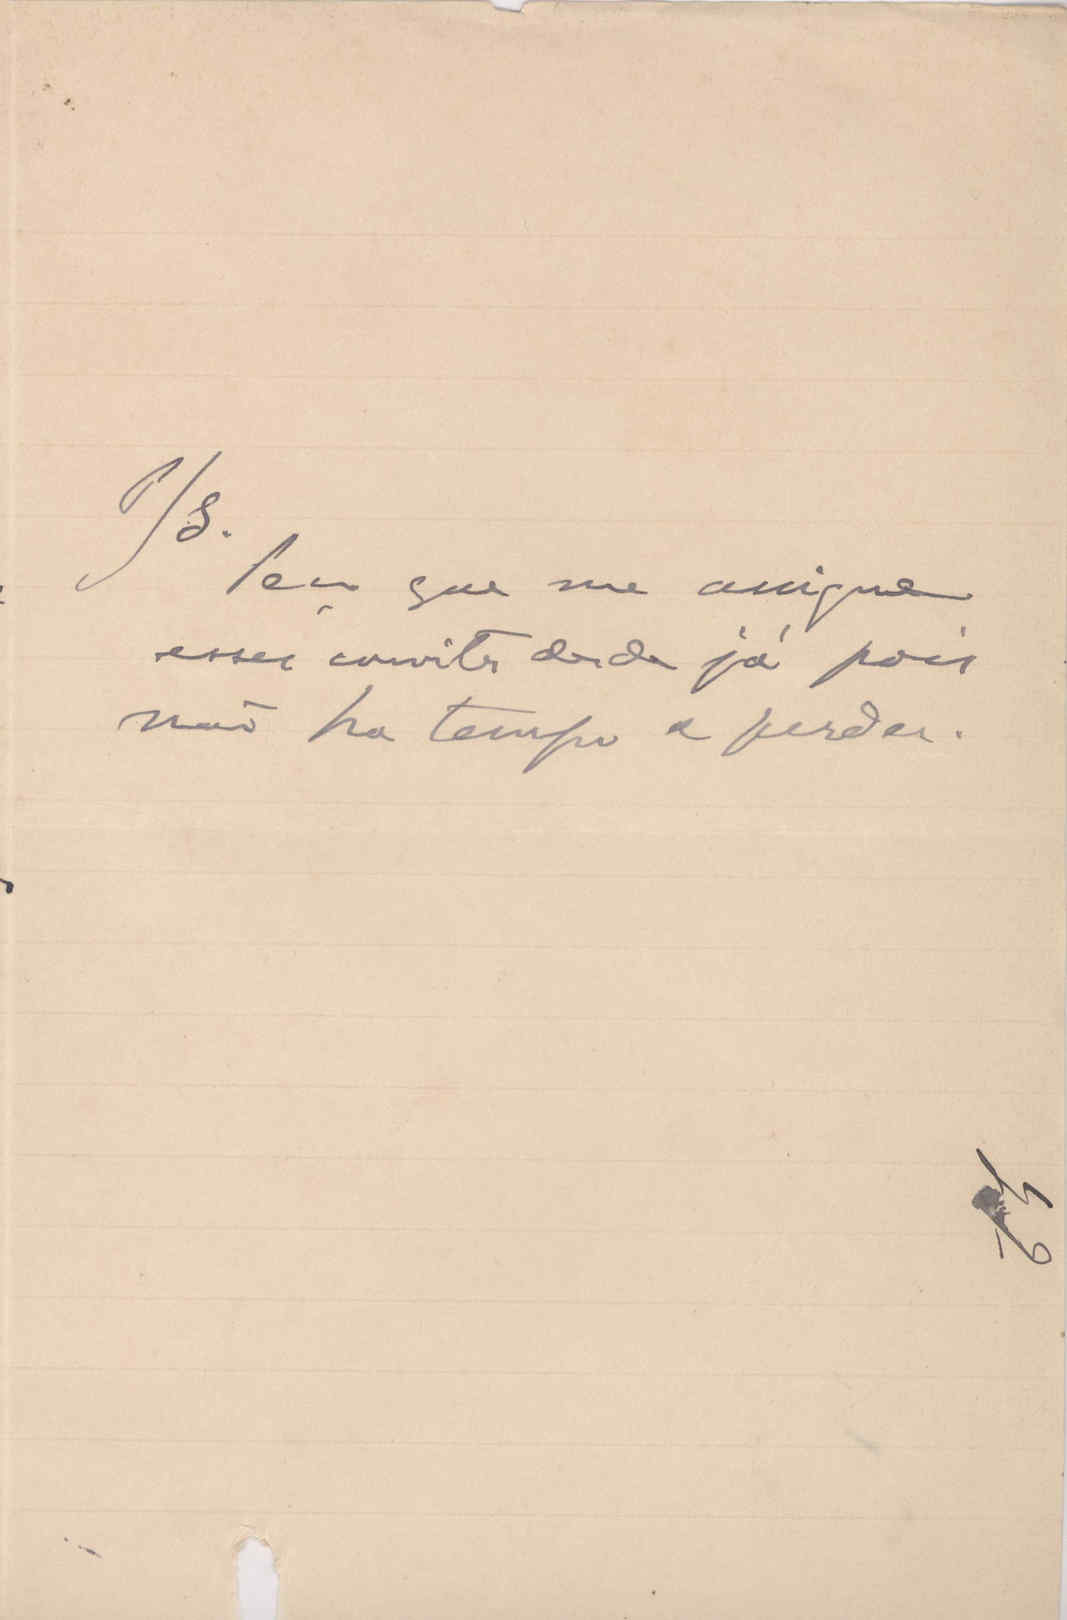 P/S.
Peço que me assigne
esses convites desde já pois
não ha tempo a perder.